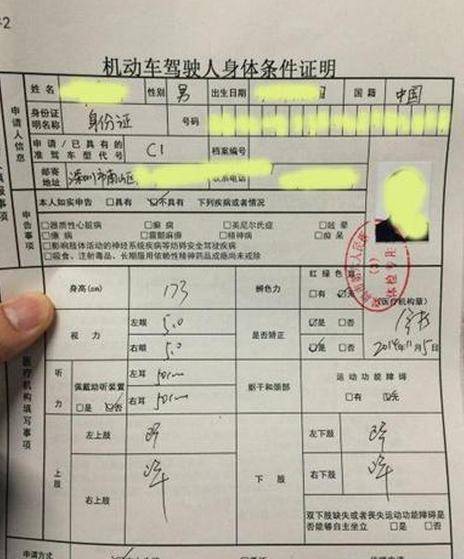 机动车驾驶人身体条件证明
姓名 性别 男 出生日期 国籍 中国
申请人信息
身份证明名称 身份证 号码
申请/已具有的准驾车型代号 C1 档案编号
邮寄地址 深圳市南山区 联系电话
申告事项
本人如实申告 □具有 ☑不具有 下列疾病或者情况
□器质性心脏病 □癫痫 □美尼尔氏症 □眩晕
□癔病 □震颤麻痹 □精神病 □痴呆
□影响肢体活动的神经系统疾病等妨碍安全驾驶疾病
□吸食、注射毒品、长期服用依赖性精神药品成瘾尚未戒除
医疗机构填写事项
身高(cm) 173 辨色力 红绿色盲 □有 ☑无
(医疗机构章)
视力 左眼 5.0 是否矫正 ☑是 □否
右眼 5.0 ☑是 □否
2014年11月5日
听力 佩戴助听装置 □是 ☑否 左耳 50cm 躯干和颈部 运动功能障碍
右耳 50cm □有 ☑无
上肢 左上肢 下肢 左下肢
右上肢 右下肢
双下肢缺失或者丧失运动功能障碍是否能够自主坐立 □是 □否
申请方式